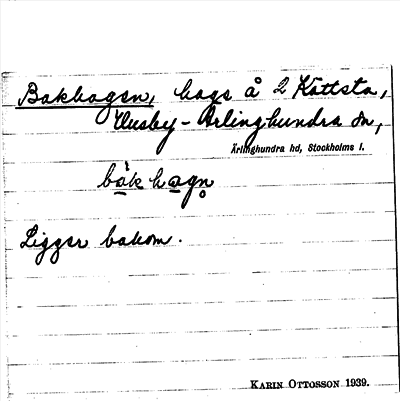 Bakhagen, hage å 2 Kättsta,
Husby-Ärlinghundra sn,
Ärlinghundra hd, Stockholms l.
bàk hagn̥
Ligger bakom.
KARIN OTTOSSON 1939.